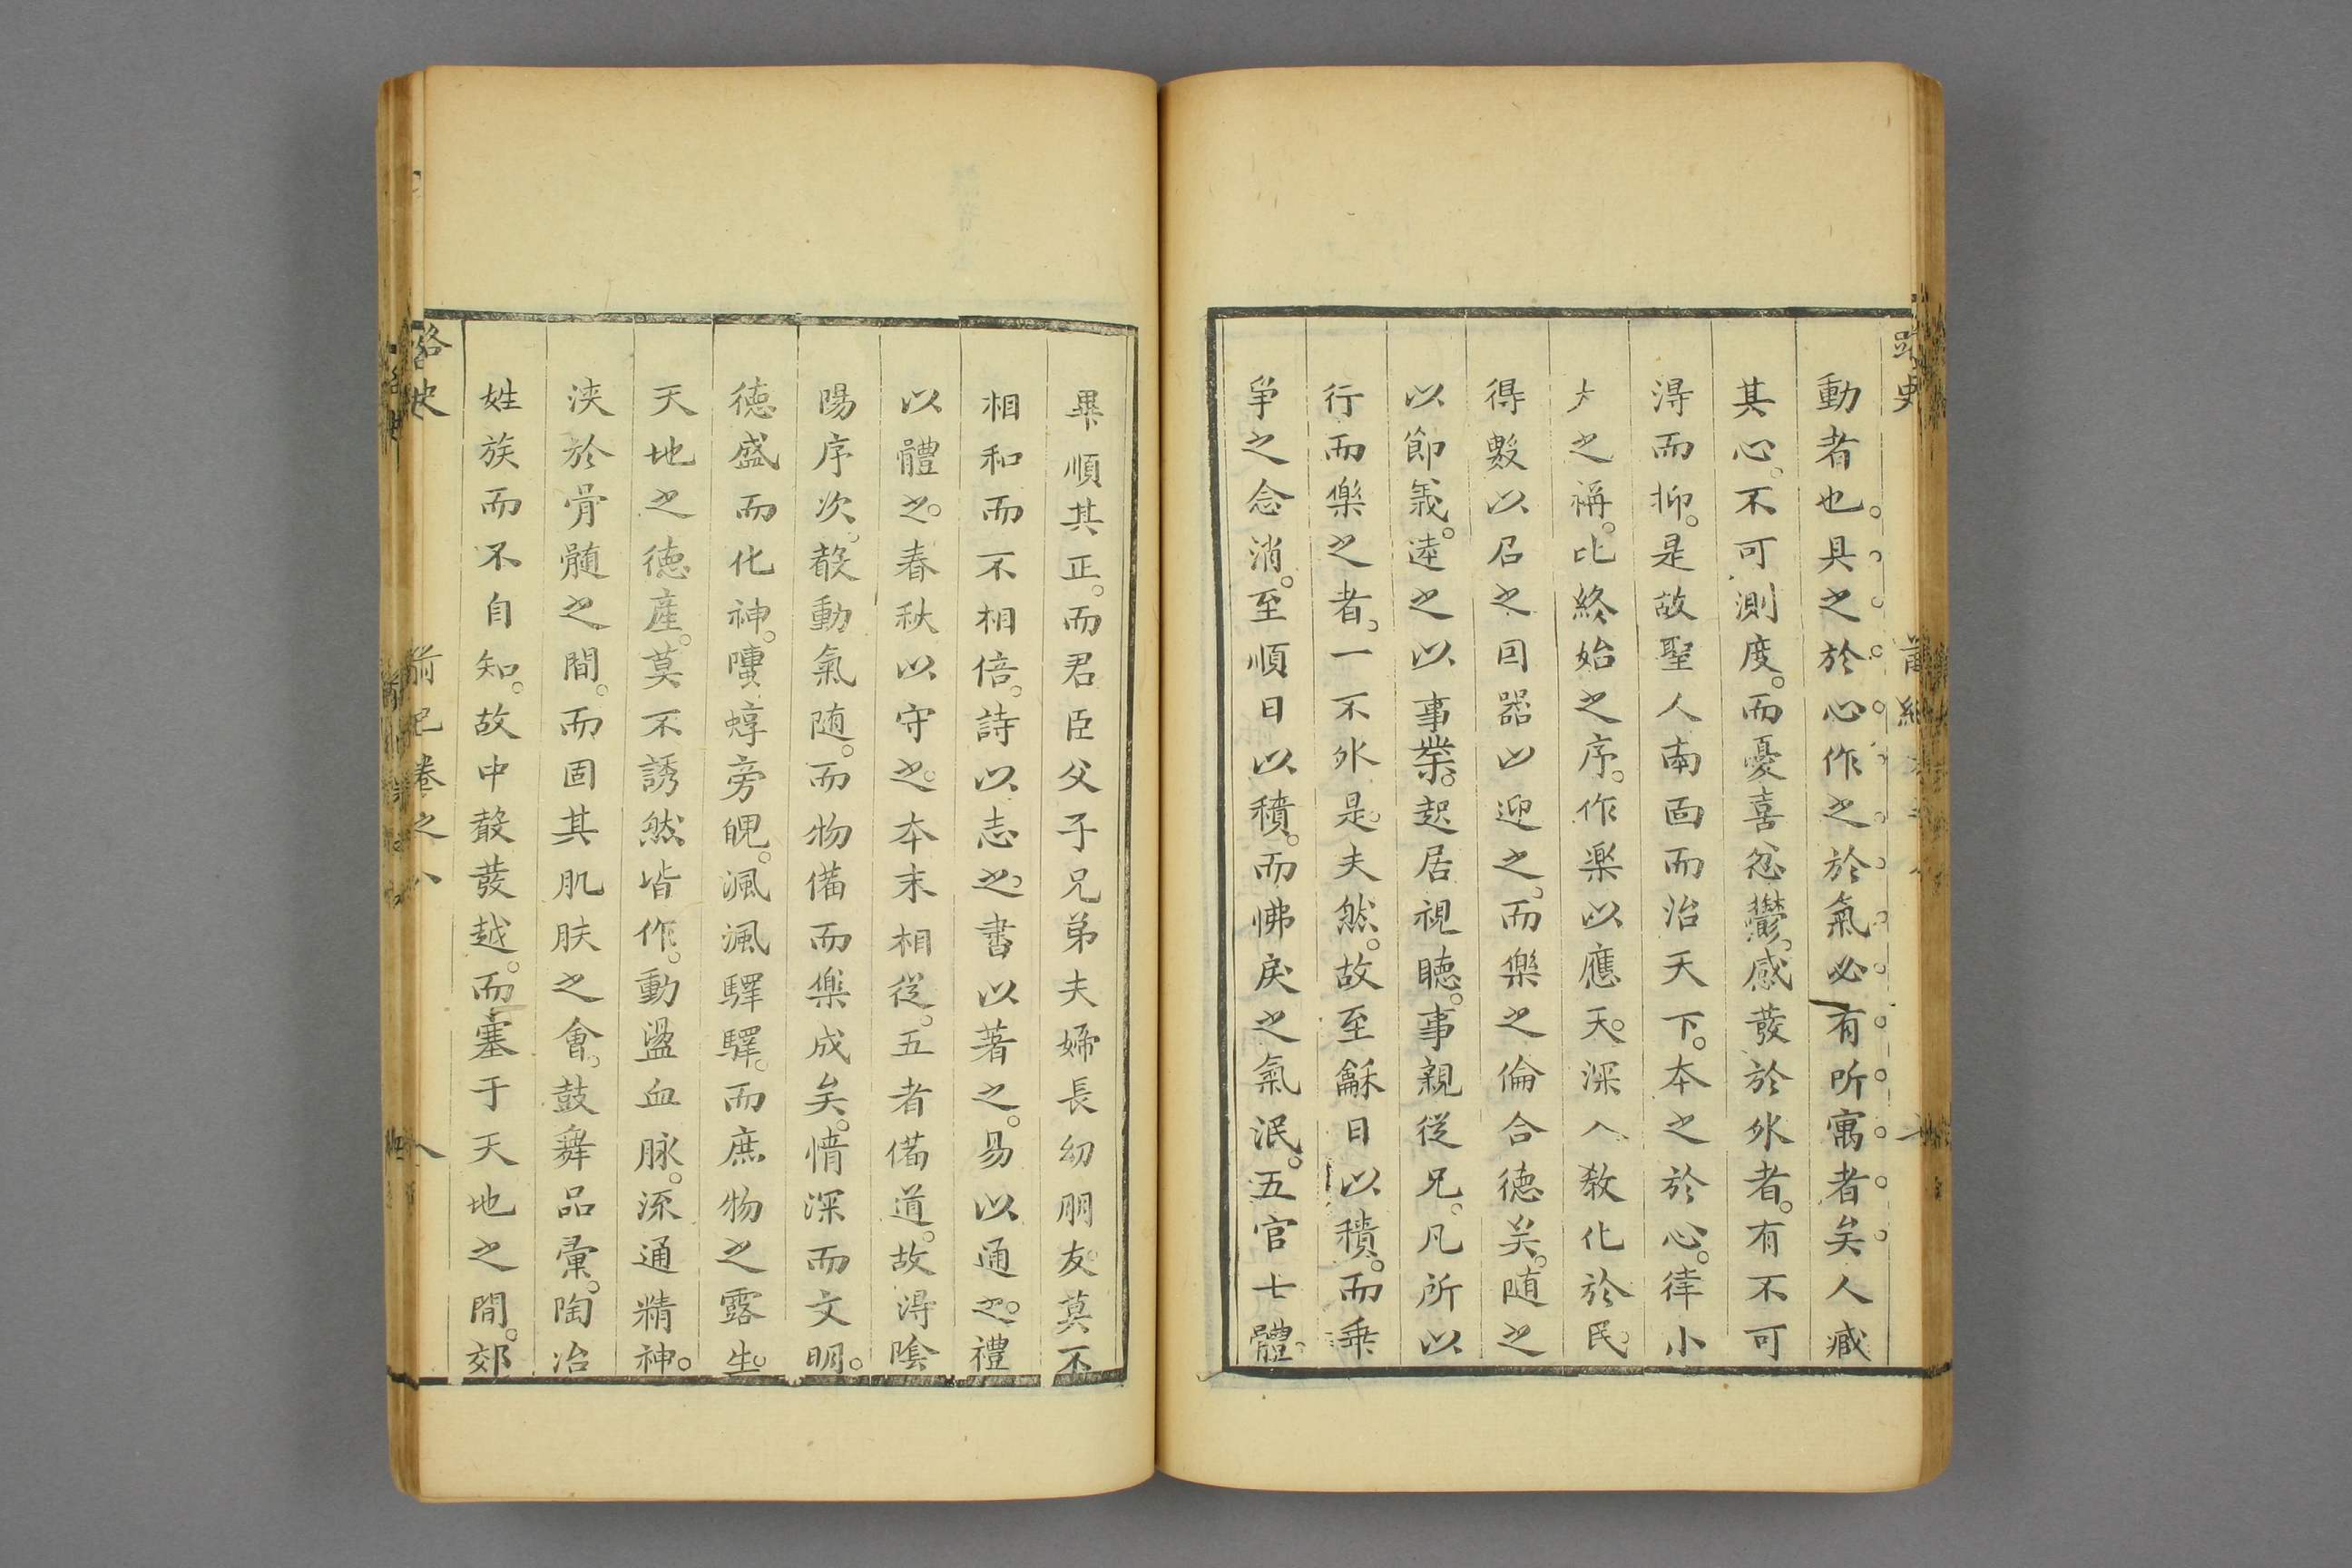 動者也具之於心作之於氣必有所寓者矣人臧
其心不可測度而憂喜忿鬱感發於外者有不可
淂而抑是故聖人南面而治天下本之於心律小
大之稱比終始之序作樂以應天深入敎化於民
得數以召之回器以迎之而樂之倫合徳矣随之
以節義逵之以事業起居視聽事親從兄凡所以
行而樂之者一不外是夫然故至龢日以積而乗
爭之念消至順日以積而怫戾之氣泯五官七體
畢順其正而君臣父子兄弟夫婦長幼朋友莫不
相和而不相倍詩以志之書以著之易以通之禮
以體之春秋以守之本末相從五者俻道故淂陰
陽序次散動氣随而物俻而樂成矣情深而文明
徳盛而化神嚝蜳旁睨渢渢驛驛而庶物之露生
天地之徳產莫不誘然皆作動盪血脉流通精神
浹於骨髄之間而固其肌肤之會鼓舞品彚陶冶
姓族而不自知故中散發越而塞于天地之間郊
路史 前紀卷之八 八